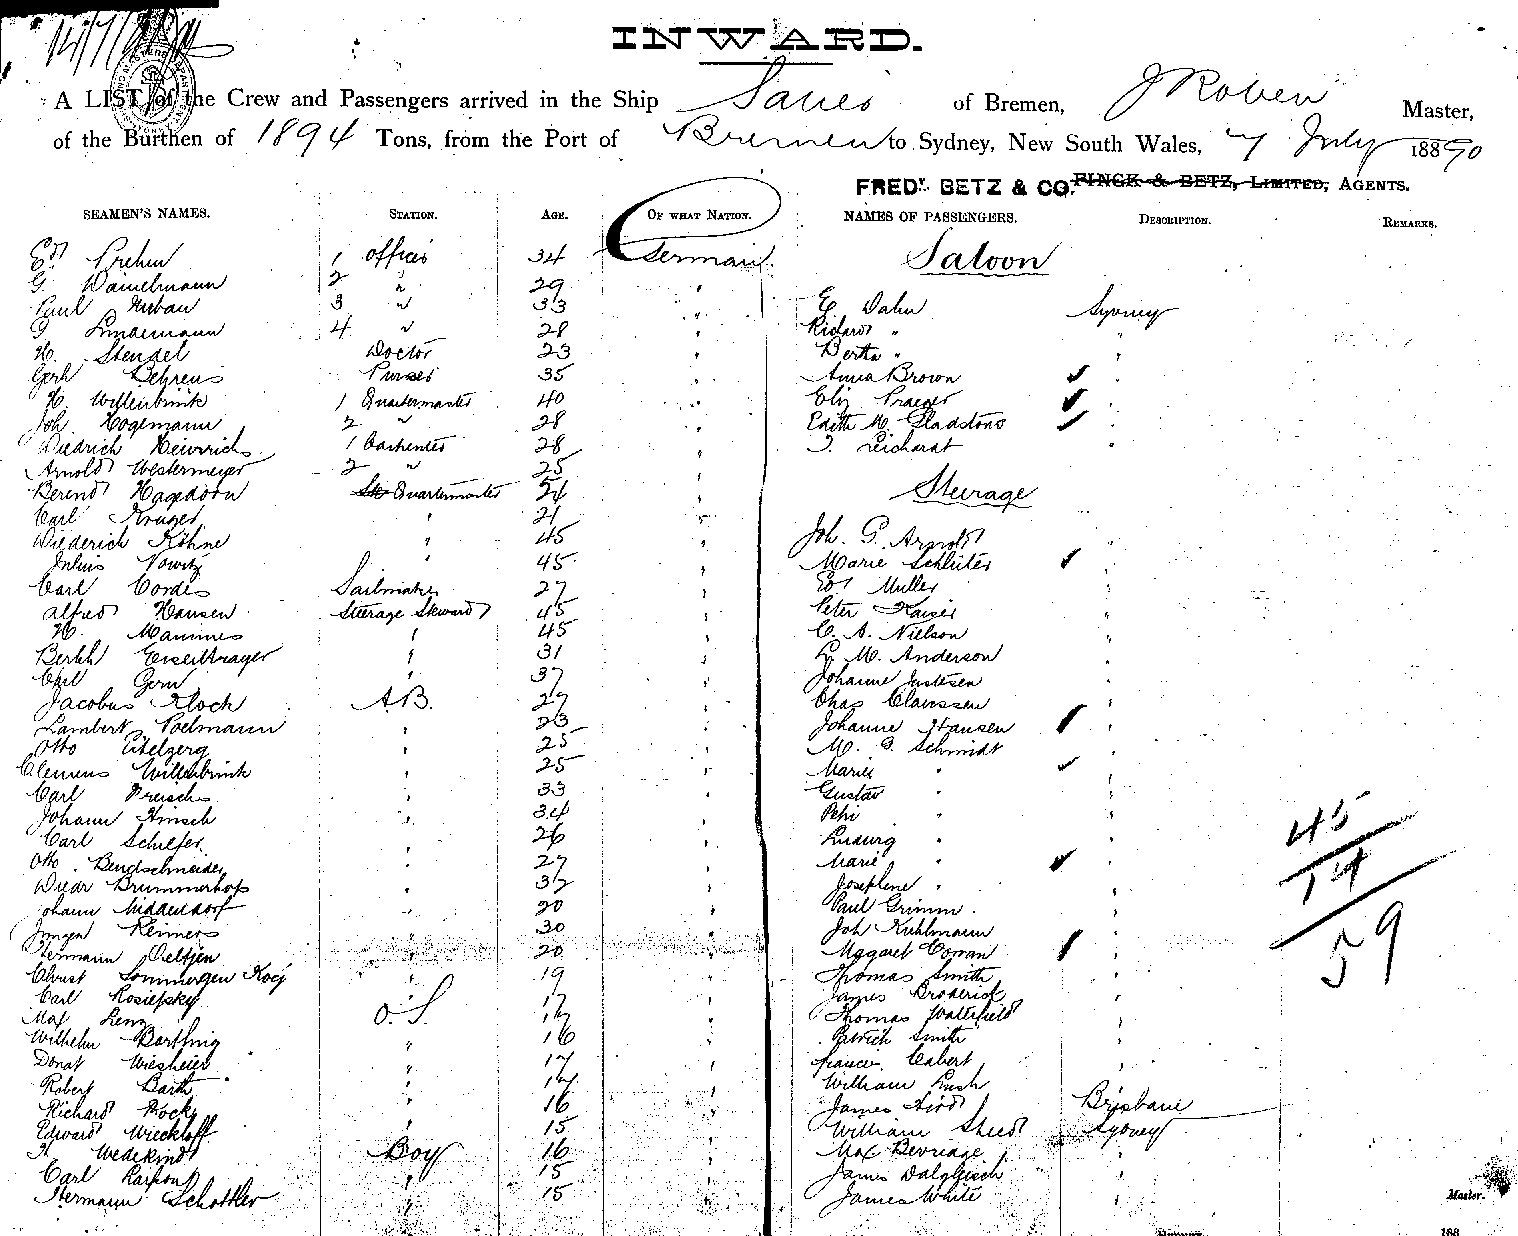 INWARD.
A LIST of the Crew and Passengers arrived in the Ship of Bremen, Master,
of the Burthen of 1894 Tons, from the Port of Bremen to Sydney, New South Wales, 7 July 18890
FREDK. BETZ & CO. FINCK & BETZ, LIMITED, AGENTS.
SEAMEN'S NAMES. STATION. AGE. OF WHAT NATION. NAMES OF PASSENGERS. DESCRIPTION. REMARKS.
1 Officer 34 German Saloon
G. 2 " 29 "
Paul Urban 3 " 33 " E Dahn Sydney
Lindemann 4 " 28 " Richard " "
H. Stendel Doctor 23 " Bertha " "
Gerh Behrens Purser 35 " Anna Brown "
H. Willenbrink 1 Quartermaster 40 " Eliz Praeger "
Joh Hogemann 2 " 28 " Edith M. Gladstone "
Diedrich Heinrichs 1 Carpenter 28 " Reichardt "
Arnold Westermeyer 2 " 25 "
Berend Hagedorn Quartermaster 24 " Steerage
Carl Kruger " 21 "
Diederich Köhne " 45 " Joh. G. Arnold "
Julius Nowitz " 45 " Marie Schlüter "
Carl Cordes Sailmaker 27 " Ed Muller "
Alfred Hansen Steerage Steward 45 " Peter Kaiser "
H. " 45 " C. A. Nielson "
" 31 " M. Anderson "
Carl " 37 " Johanne Justesen "
Jacobus Kloch A.B. 27 " Chas Claussen "
Lambert Poelmann " 23 " Johanne Hansen "
Otto " 25 " M. Schmidt "
Clemens Willenbrink " 25 " Marie " "
Carl " 33 " Gustav " "
Johann Hinsch " 34 " "
Carl Schiefer " 26 " Ludwig " "
Otto Bendschneider " 27 " Marie " "
Diedr Brummerhop " 37 " Josephine " "
Johann Middendorf " 20 " Paul Grimm "
Jurgen Renners " 30 " Joh Kuhlmann "
Hermann Oeltjen " 20 " Magaret Conran "
Christ " 19 " Thomas Smith "
Carl " 17 " James Broderick "
Max Lenz O.S. 17 " Thomas Waterfield "
Wilhelm Barthing " 16 " Patrick Smith "
Donat Wiesheier " 17 " Francis Cabert "
Robert Barth " 17 " William Lush "
Richard Bock " 16 " James Aird Brisbane
Edward Wieckhoff " 15 " William Sheed Sydney
Wedekind Boy 16 " Max Beveriage "
Carl " 15 " James Dalgleisch "
Hermann Schottler " 15 " James White "
45
14
59
Master.
188